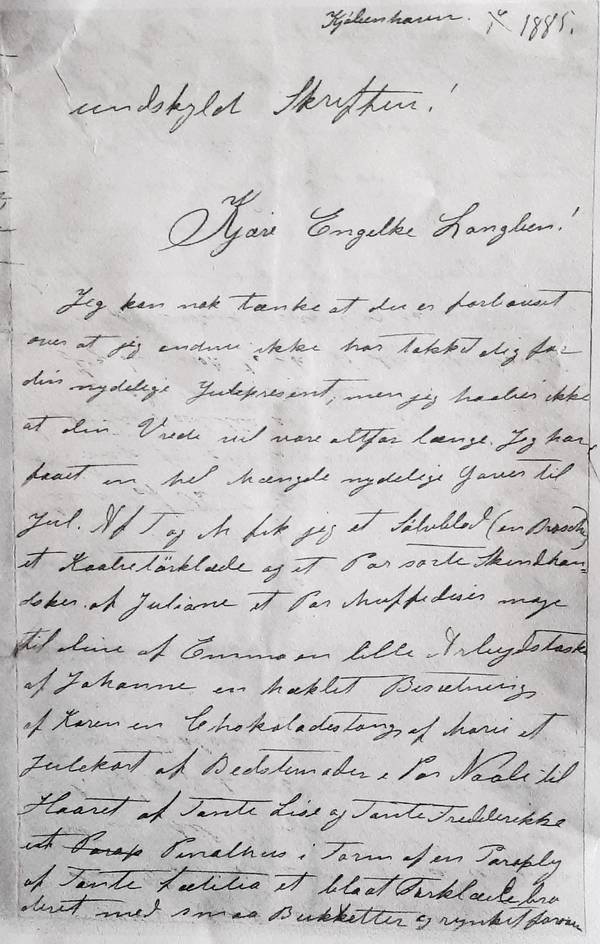 Kjöbenhavn. 1885.
undskyld Skriften!
Kjære Engelke Langben!
Jeg kan nok tænke at du er forbauset
over at jeg endnu ikke har takket dig for
din nydelige Julepresent, men jeg haaber ikke
at din Vrede vil vare altfor længe. Jeg har
faaet en hel Mængde nydelige Gaver til
Jul. Af T og M fik jeg et Sölvblad (en Brosche)
et Kaabetörklæde og et Par sorte Skindhan=
dsker. af Juliane et Par Muffediser mage
til dine af Emma en lille Arbejdstaske
af Johanne en hæklet Besætning
af Karen en Chokoladestang af Marie et
Julekort af Bedstemoder e Par Naale til
Haaret af Tante Lise og Tante Fredderikke
et Penalhus i Form af en Paraply
af Tante Lætitia et blaat Törklæde bro
deret med smaa Bukketter og rynket foroven